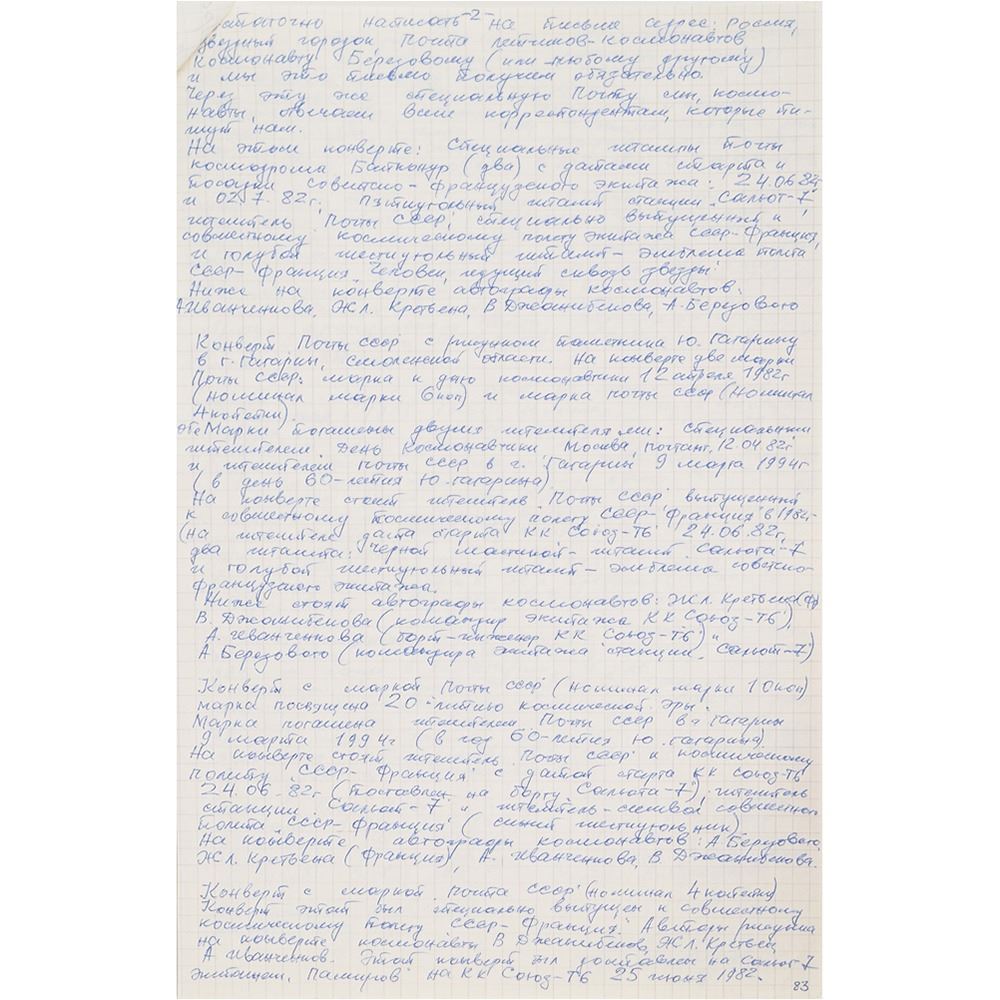 -2-
статочно написать на письме адрес: Россия,
Звездный городок, Почта летчиков-космонавтов,
Космонавту Березовому (или любому другому)
и мы это письмо получим обязательно.
Через эту же специальную почту мы, космо-
навты, отвечаем всем корреспондентам, которые пи-
шут нам.
На этом конверте: Специальные штампы Почты
космодрома Байконур (два) с датами старта и
посадки советско-французского экипажа: 24.06.82г
и 02.7.82г. Пятиугольный штамп станции "Салют-7",
штемпель "Почты СССР", специально выпущенный к
совместному космическому полету экипажа СССР-Франция,
и голубой шестиугольный штамп - эмблема полета
СССР-Франция "Человек, идущий сквозь звезды".
Ниже на конверте автографы космонавтов:
А.Иванченкова, Ж.Л. Кретьена, В Джанибекова, А.Березового
Конверт Почты СССР с рисунком памятника Ю. Гагарину
в г. Гагарин, Смоленской области. На конверте две марки
Почты СССР: марка к дню космонавтики 12 апреля 1982г
(номинал марки 6 коп) и марка почты СССР (номинал
4 копейки).
Обе Марки погашены двумя штемпелями: специальным
штемпелем "День Космонавтики. Москва, почтамт, 12.04.82г
и штемпелем почты СССР в г. Гагарин 9 марта 1994г
(в день 60-летия Ю.Гагарина)
На конверте стоит штемпель "Почты СССР" выпущенный
к совместному космическому полету СССР-"Франция" в 1982г
(на штемпеле дата старта КК "Союз-Т6" 24.06.82г,
два штампа: черной мастикой - штамп "Салюта-7"
и голубой шестиугольный штамп - эмблема советско-
французского экипажа.
Ниже стоят автографы космонавтов: Ж.Л. Кретьена (Фр)
В. Джанибекова (командир экипажа КК "Союз-Т6"),
А. Иванченкова (борт-инженер КК "Союз-Т6") и
А Березового (командира экипажа станции "Салют-7")
Конверт с маркой Почты СССР (номинал марки 10 коп)
марка посвящена 20-летию космической эры.
Марка погашена штемпелем Почты СССР в г Гагарин
9 марта 1994г (в год 60-летия Ю.Гагарина)
На конверте стоят штемпель "Почты СССР" к космическому
полету "СССР-Франция" с датой старта КК "Союз-Т6"
24.06.82г (поставлен на борту "Салюта-7"), штемпель
станции "Салют-7" и штемпель-символ совместного
полета "СССР-Франция" (синий шестиугольник)
На конверте автографы космонавтов: А.Березового,
Ж.Л. Кретьена (Франция), А. Иванченкова, В Джанибекова.
Конверт с маркой "Почта СССР" (номинал 4 копейки)
Конверт этот был специально выпущен к совместному
космическому полету "СССР-Франция". Авторы рисунка
на конверте космонавты В Джанибеков, Ж.Л. Кретьен,
А Иванченков. Этот конверт был доставлен на Салют-7
экипажем "Памиров" на КК "Союз-Т6" 25 июня 1982г.
83